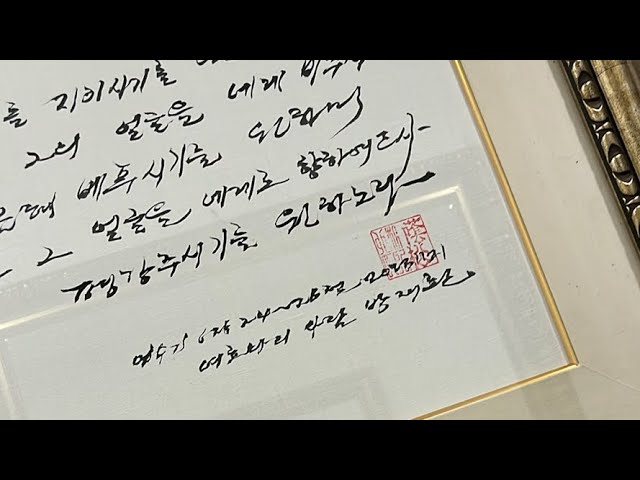 를 지키시기를
그의 얼굴을 네게 비추사
은혜 베푸시기를 원하며
그 얼굴을 네게로 향하여 드사
평강 주시기를 원하노라
민수기 6장 24~26절
여호와의 사람 박재환